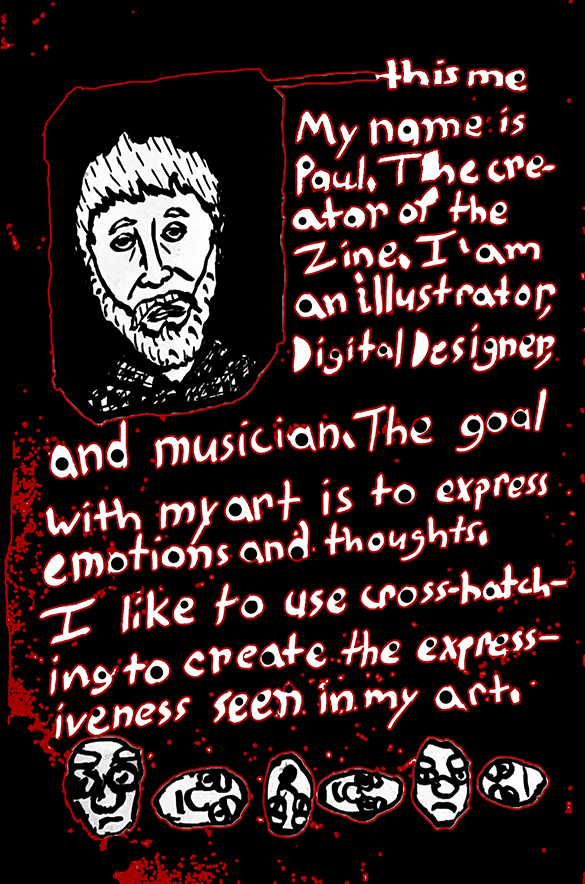 this me
My name is
Paul. The cre-
ator of the
Zine. I'am
an illustrator,
Digital Designer,
and musician. The goal
with my art is to express
emotions and thoughts.
I like to use cross-hatch-
ing to create the express-
iveness seen in my art.